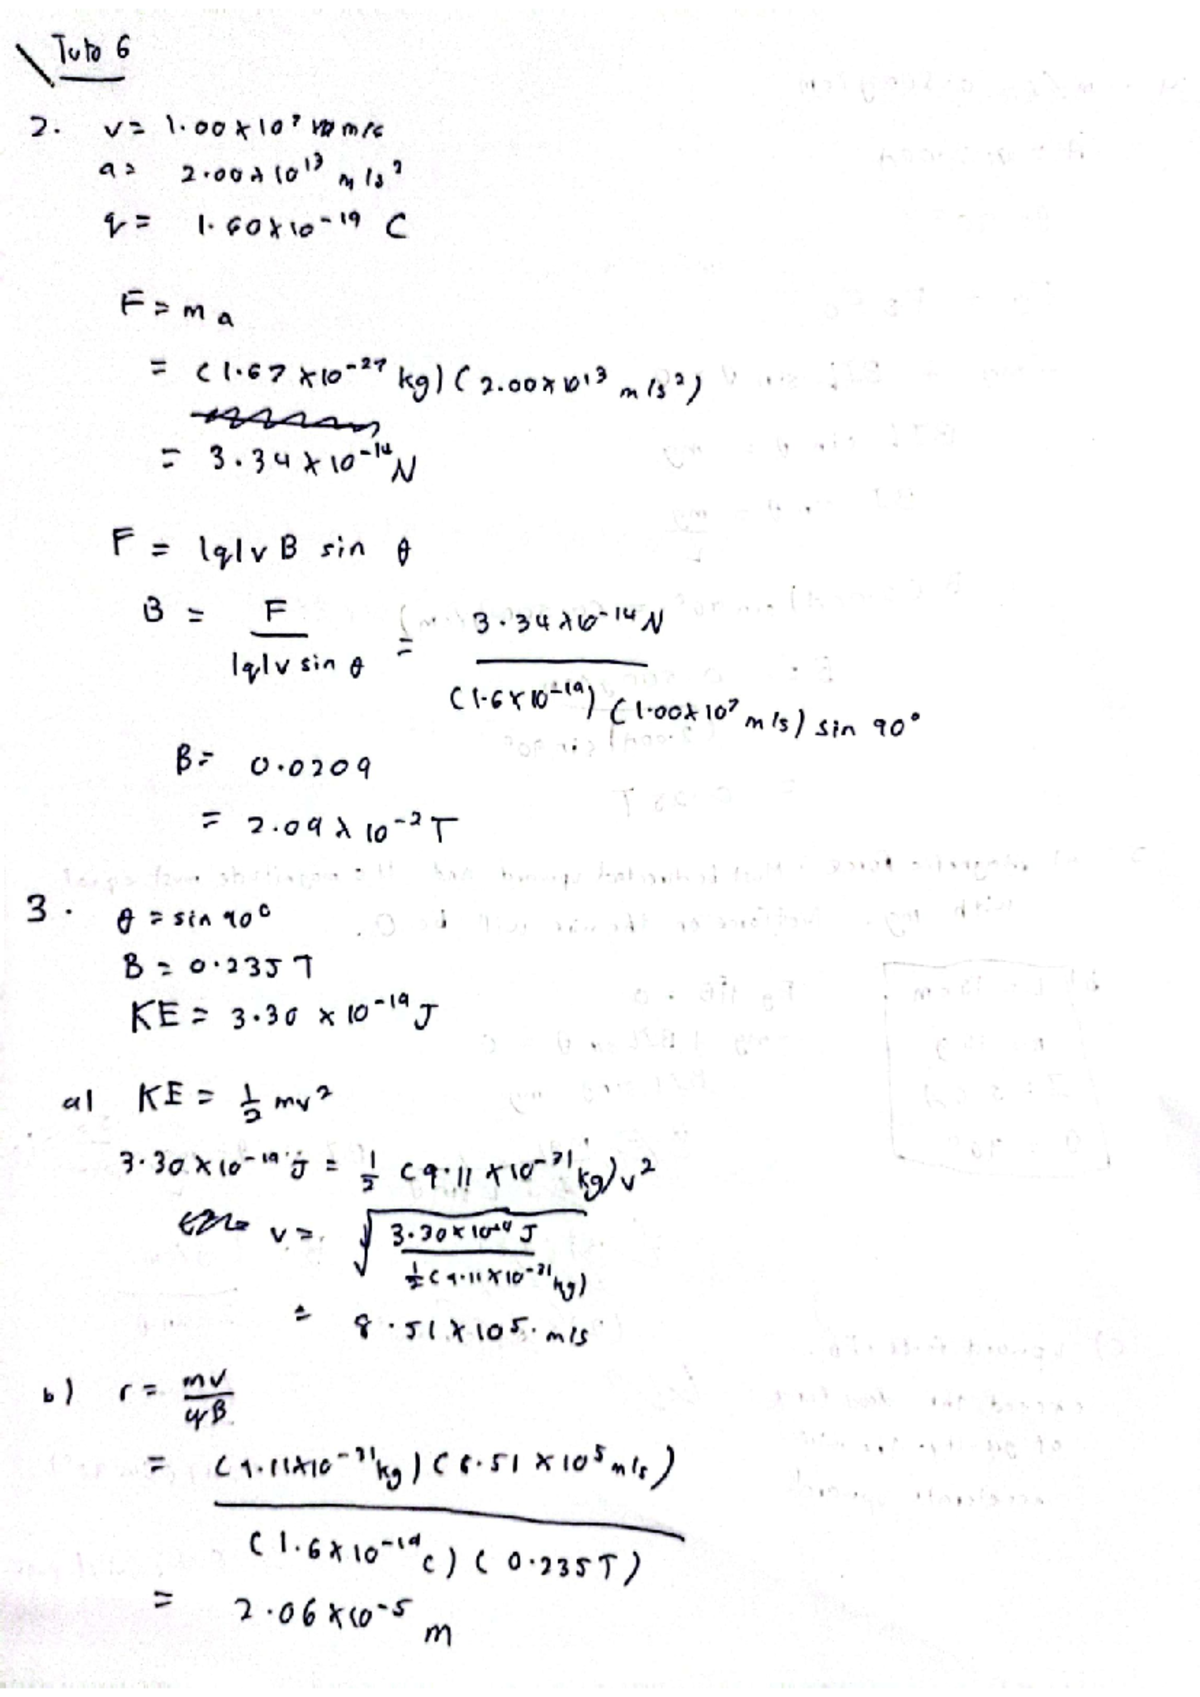 Tuto 6
2. v = 1.00 x 10⁷ m/s
a = 2.00 x 10¹³ m/s²
q = 1.60 x 10⁻¹⁹ C
F = ma
= (1.67 x 10⁻²⁷ kg) (2.00 x 10¹³ m/s²)
= 3.34 x 10⁻¹⁴ N
F = |q|v B sin θ
B = F / |q|v sin θ = 3.34 x 10⁻¹⁴ N / (1.6 x 10⁻¹⁹) (1.00 x 10⁷ m/s) sin 90°
B = 0.0209
= 2.09 x 10⁻² T
3. θ = sin 90°
B = 0.235 T
KE = 3.30 x 10⁻¹⁹ J
a) KE = 1/2 mv²
3.30 x 10⁻¹⁹ J = 1/2 (9.11 x 10⁻³¹ kg) v²
v = √(3.30 x 10⁻¹⁹ J / 1/2 (9.11 x 10⁻³¹ kg))
= 8.51 x 10⁵ m/s
b) r = mv / qB
= (9.11 x 10⁻³¹ kg) (8.51 x 10⁵ m/s) / (1.6 x 10⁻¹⁹ C) (0.235 T)
= 2.06 x 10⁻⁵ m